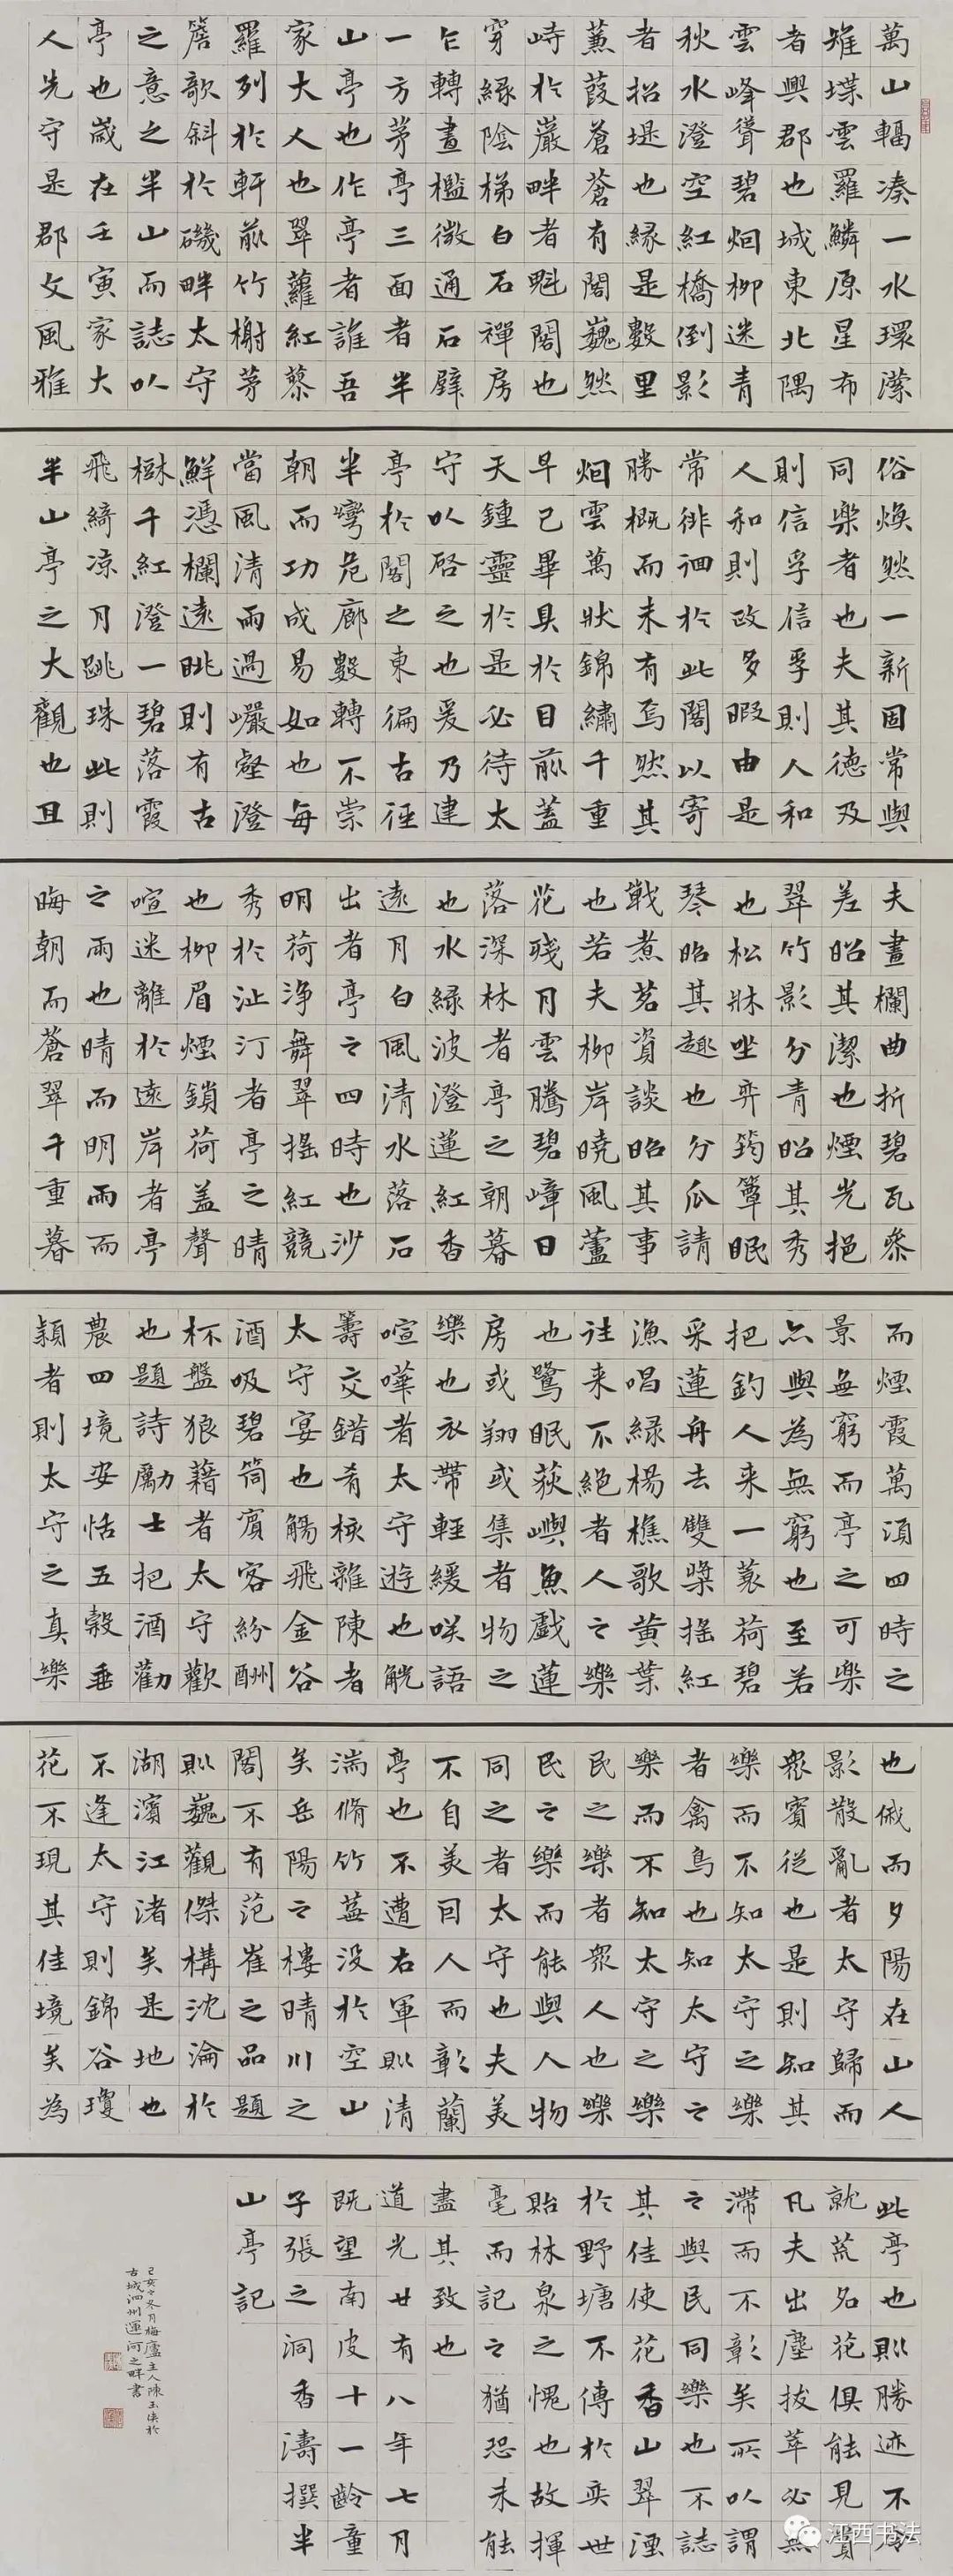 萬山輻湊一水環瀠
雉堞雲羅鱗原星布
者興郡也城東北隅
雲峰聳碧烟柳迷青
秋水澄空紅橋倒影
者招堤也緣是數里
蒹葭蒼蒼有閣巍然
峙於巖畔者魁閣也
穿緑陰梯白石禪房
乍轉畫檻微通石壁
一方茅亭三面者半
山亭也作亭者誰吾
家大人也翠蘿紅蓼
羅列於軒前竹榭茅
簷歌斜於磯畔太守
之意之半山而誌以
亭也歲在壬寅家大
人先守是郡文風雅
俗煥然一新固常與
同樂者也夫其德及
則信孚信孚則人和
人和則政多暇由是
常徘徊於此閣以寄
勝概而未有焉然其
烟雲萬狀錦繡千重
早已畢具於目前蓋
天鍾靈於是必待太
守以啓之也爰乃建
亭於閣之東偏古徑
半彎危廊數轉不崇
朝而功成易如也每
當風清雨過巖壑澄
鮮憑欄遠眺則有古
樹千紅澄一碧落霞
飛綺凉月跳珠此則
半山亭之大觀也且
夫畫欄曲折碧瓦參
差昭其潔也煙光挹
翠竹影分青昭其秀
也松牀坐弈筠簟眠
琴昭其趣也分瓜請
戰煮茗資談昭其事
也若夫柳岸曉風蘆
花殘月雲騰碧嶂日
落深林者亭之朝暮
也水緑波澄蓮紅香
遠月白風清水落石
出者亭之四時也沙
明荷淨舞翠搖紅競
秀於沚汀者亭之晴
也柳眉煙鎖荷盖聲
喧迷離於遠岸者亭
之雨也晴而明雨而
晦朝而蒼翠千重暮
而煙霞萬頃四時之
景無窮而亭之可樂
亦與為無窮也至若
把釣人来一蓑荷碧
采蓮舟去雙槳搖紅
漁唱緑楊樵歌黄葉
往来不絶者人之樂
也鷺眠荻嶼魚戲蓮
房或翔或集者物之
樂也衣帶輕緩咲語
喧嘩者太守遊也觥
籌交錯肴核雜陳者
太守宴也觴飛金谷
酒吸碧筒賓客紛酬
杯盤狼藉者太守歡
也題詩勵士把酒勸
農四境安恬五穀垂
穎者則太守之真樂
也俄而夕陽在山人
影散亂者太守歸而
衆賓從也是則知其
樂而不知太守之樂
者禽鳥也知太守之
樂而不知太守之樂
民之樂者衆人也樂
民之樂而能與人物
同之者太守也夫美
不自美因人而彰蘭
亭也不遭右軍則清
湍脩竹蕪没於空山
矣岳陽之樓晴川之
閣不有范崔之品題
則巍觀傑構沈淪於
湖濱江渚矣是地也
不逢太守則錦谷瓊
花不現其佳境矣為
此亭也則勝迹不令
就荒名花俱能見賞
凡夫出塵拔萃必無
滯而不彰矣所以謂
之與民同樂也不誌
其佳使花香山翠湮
於野塘不傳於奕世
貽林泉之愧也故揮
毫而記之猶恐未能
盡其致也
道光廿有八年七月
既望南皮十一齡童
子張之洞香濤撰半
山亭記
己亥之冬月梅廬主人陳玉
古城泗州運河之畔書
江西书法